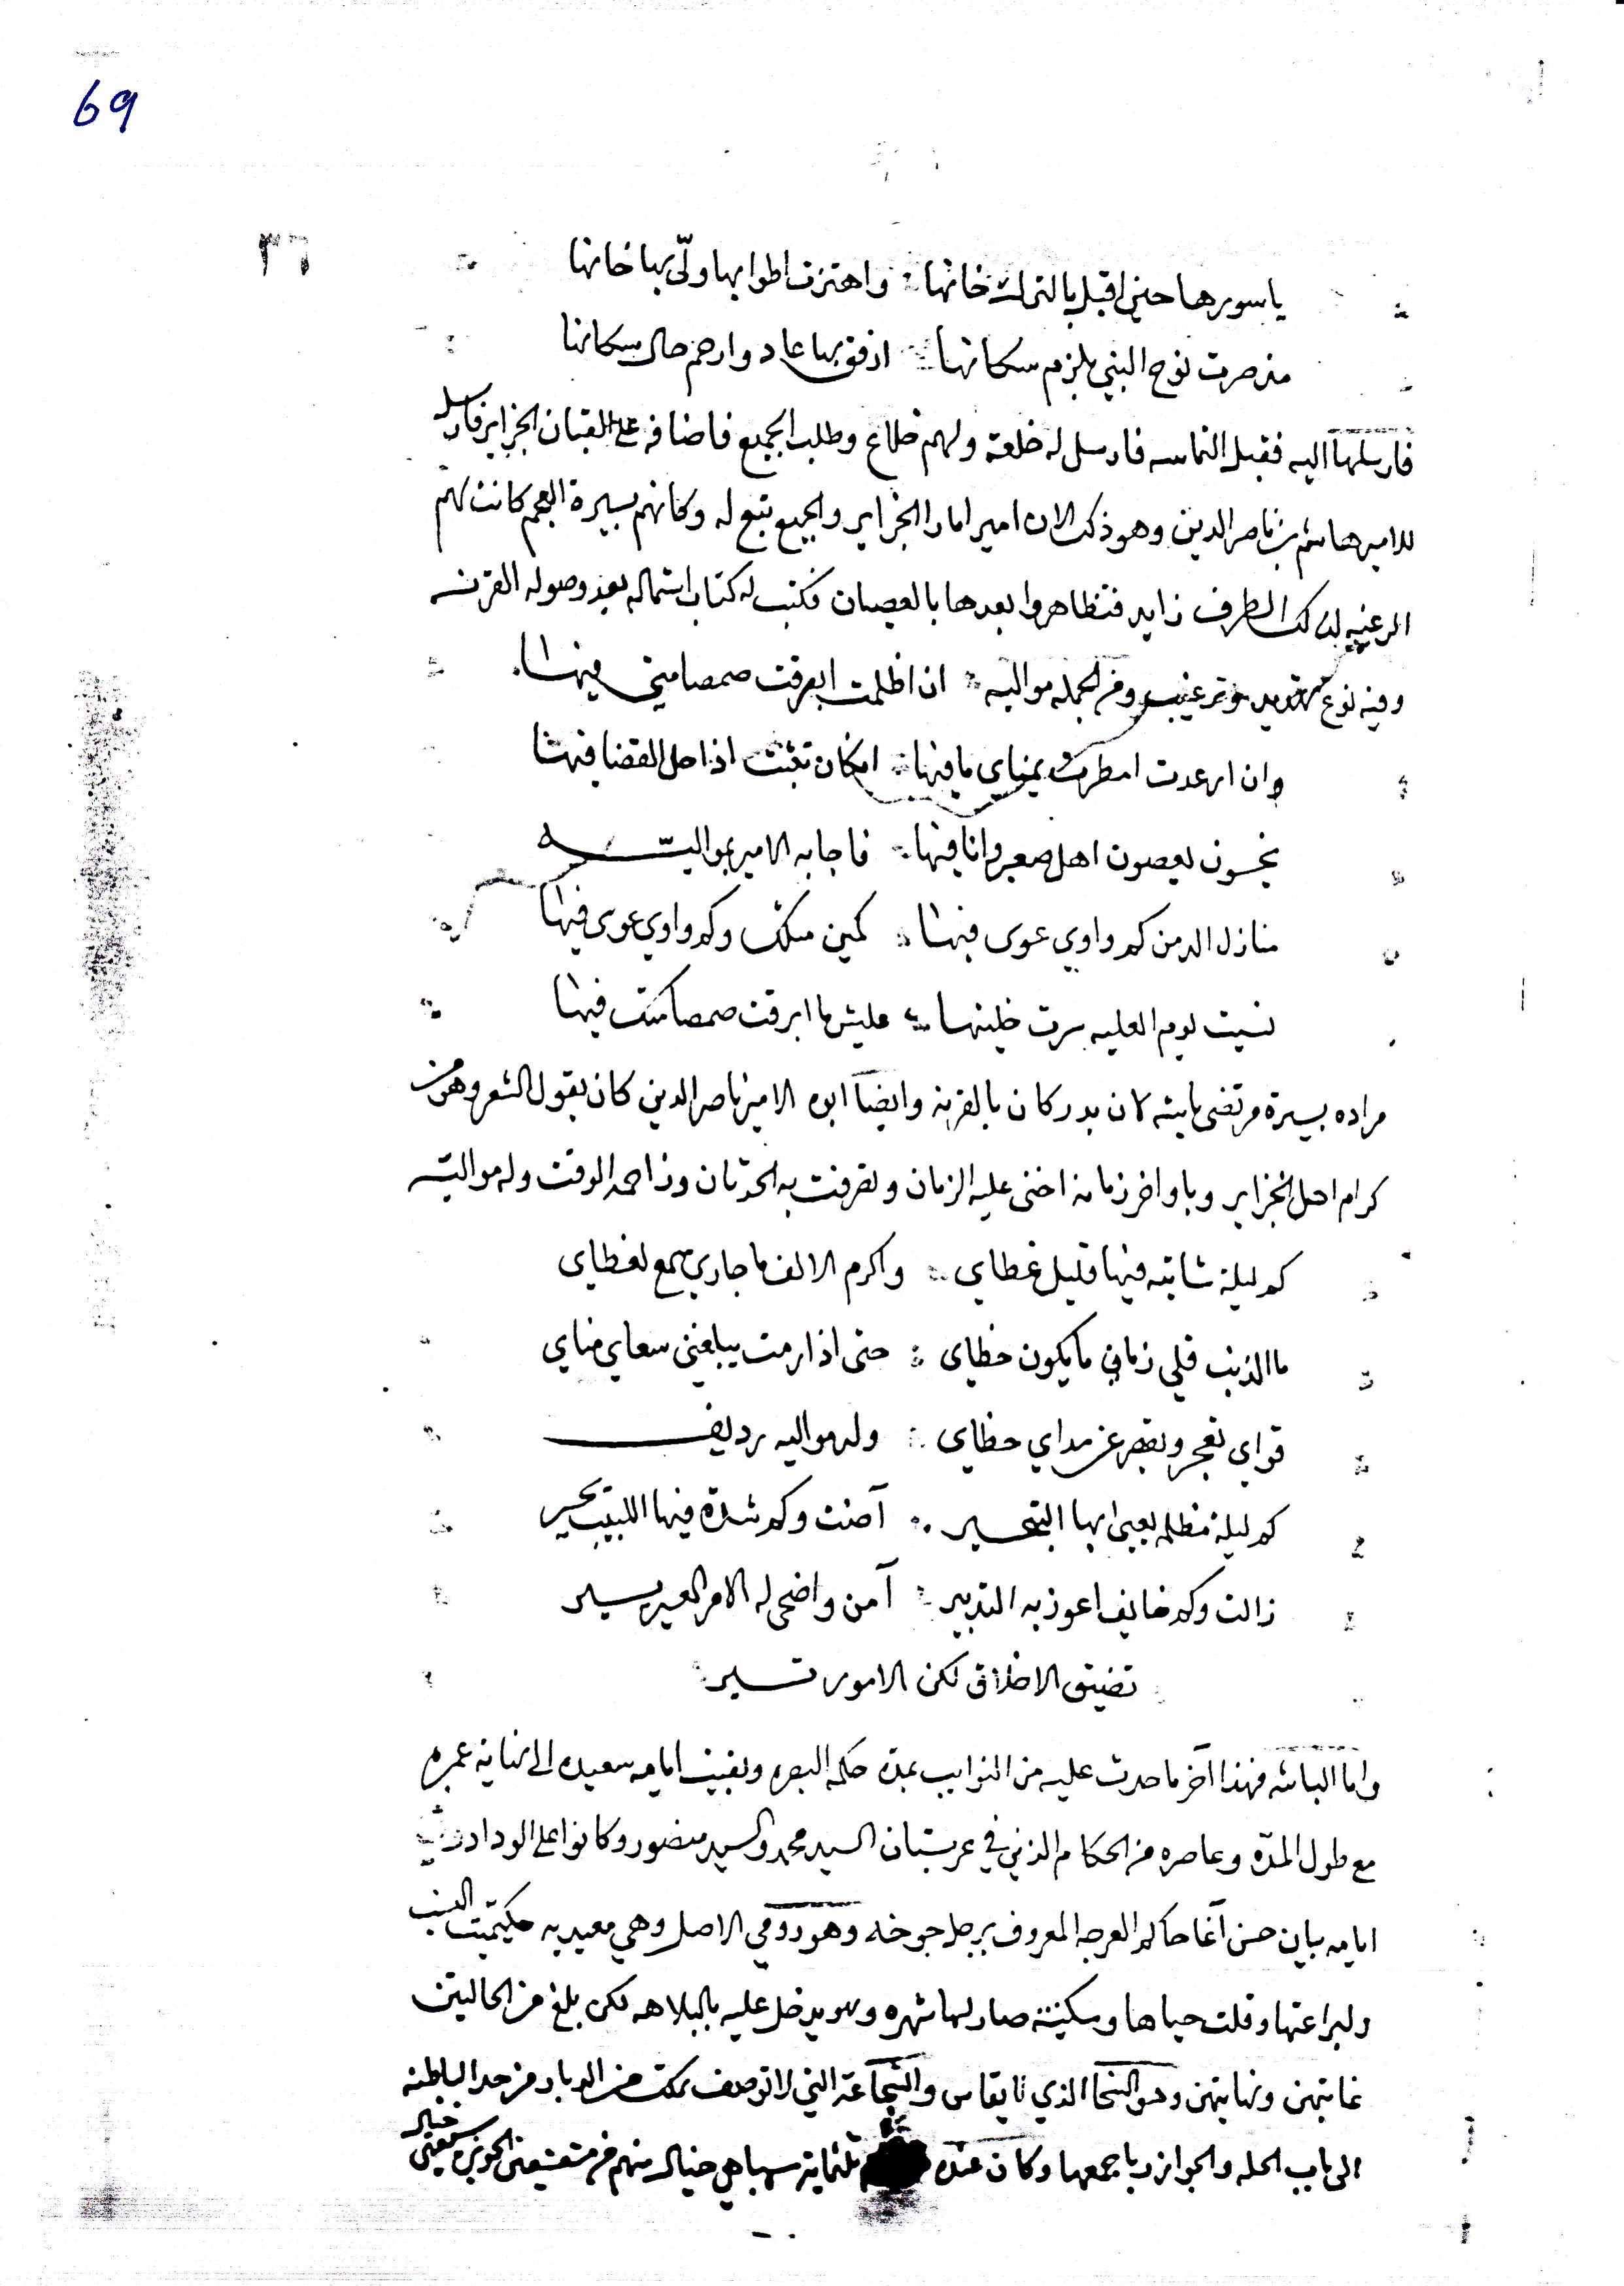 69
٣٦
ياسورها حين اقبل بالترك خانها واهتزت اطوابها ولّى بها خانها
منصرت نوح النبي يلزم سكانها ارفق بها عاد وارحم حال سكانها
فارسلها اليه فقبل التماسه فارسل له خلعة ولهم خلاع وطلب الجميع فاضافه على القبان الجزاير فارسله
للامير هاشم بن ناصر الدين وهو ذكر الان امير امارا الجزاير والجميع تبع له وكانهم بسيرة العجم كانت لهم
الرغبه لذلك الطرف زايد فتظاهروا بعدها بالعصيان فكتب له كتاب استماله بعد وصوله القرنه
وفيه نوع تهديد وترغيب ومن الجمله مواليه ان اظلمت ابرقت صمصامتي فيها
وان ارعدت امطرت يمناي مافيها امكان تثبت اذا حل القضا فيها
يحسون يعصون اهل صعبر وانا فيها فاجابه الامير بمواليه
منازل الدمن كم واوي عوى فيها كمين مثلك وكم واوي عوى فيها
نسيت يوم العليه سرت خليتها عليش ما ابرقت صمصامتك فيها
مراده بسيرة مرتضى باشه لان بدر كان بالقرنه وايضا ابوه الامير ناصر الدين كان يقول الشعر وهو من
كرام اهل الجزاير وباواخر زمانه اخنى عليه الزمان وتصرفت به الحدثان وزاحمه الوقت وله مواليه
كم ليلة شاتيه فيها قليل غطاي واكرم الالف ما جاري سمع لغطاي
ما الذنب قلي زماني ما يكون خطاي حتى اذا رمت يبلغني سعاي مناي
قواي تعجز وتقصر عن مداي خطاي وله مواليه رديف
كم ليلة مظلمه يعيى بها التحسير آضت وكم شدة فيها اللبيب يحير
زالت وكم خايف اعوز به التدبير آمن واضحى له الامر العسير يسير
تضيق الاخلاق لكن الامور تسير
واما الباشه فهذا آخر ما حدث عليه من النوايب بمدة حكمه البصره وبقيت ايامه سعيده الى نهاية عمره
مع طول المدّه وعاصره من الحكام الذي في عربستان السيد محمد والسيد منصور وكانوا على الوداد
ايامه بيان حسن آغا حاكم العرجه المعروف برجل جوخه وهو رومي الاصل وهي معيديه النسب
ولبراعتها وقلت حياها وسكينته صار لها شهره وهو يدخل عليه بالبلاهه لكن بلغ من الحالتين
غايتهن ونهايتهن وهو السخا الذي لا يقاس والشجاعة التي لا توصف من حد الباطنه
الى باب الحله والجوازر باجمعها وكان عنده ثلثماية سباهي خيال منهم